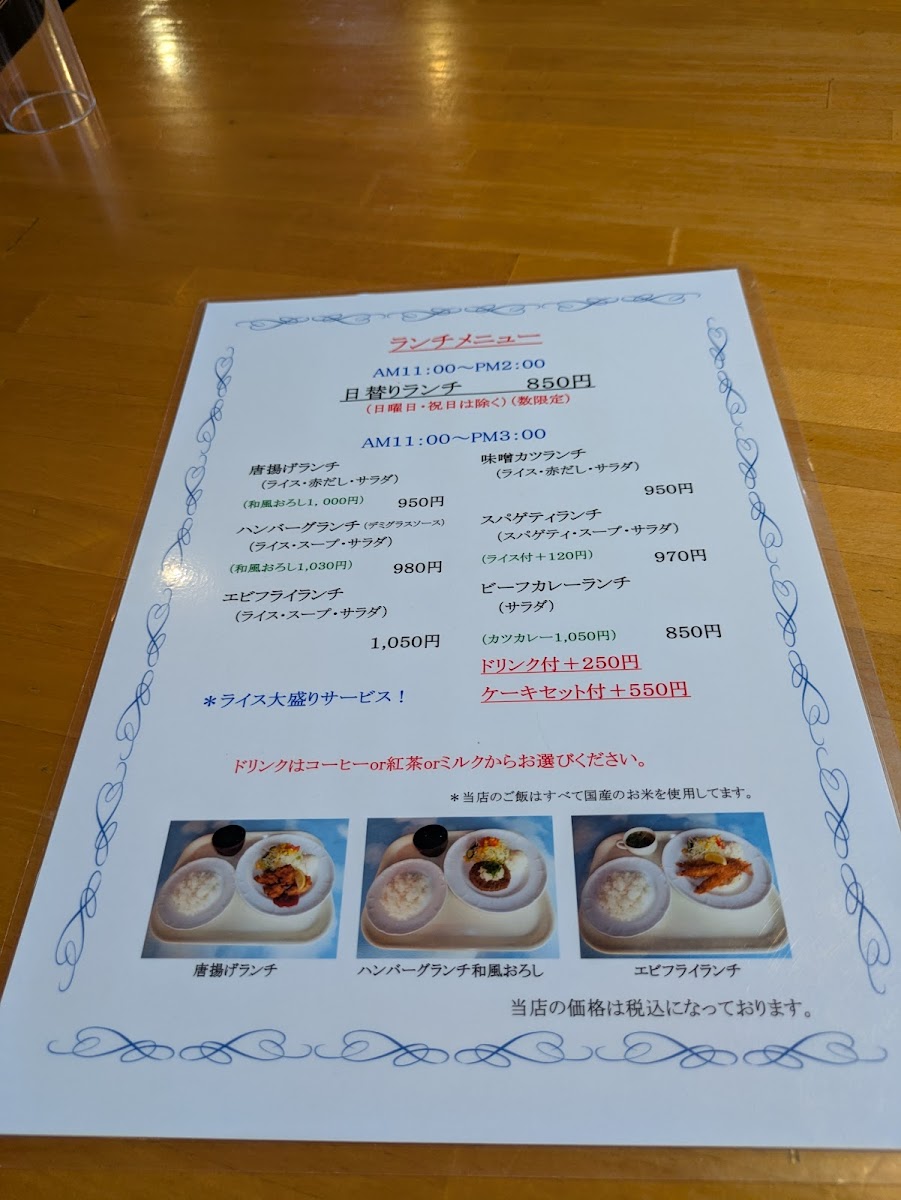 ランチメニュー
AM11:00～PM2:00
日替りランチ 850円
(日曜日・祝日は除く)(数限定)
AM11:00～PM3:00
唐揚げランチ
(ライス・赤だし・サラダ)
(和風おろし1,000円) 950円
ハンバーグランチ(デミグラスソース)
(ライス・スープ・サラダ)
(和風おろし1,030円) 980円
エビフライランチ
(ライス・スープ・サラダ)
1,050円
＊ライス大盛りサービス！
味噌カツランチ
(ライス・赤だし・サラダ)
950円
スパゲティランチ
(スパゲティ・スープ・サラダ)
(ライス付＋120円) 970円
ビーフカレーランチ
(サラダ)
(カツカレー1,050円) 850円
ドリンク付＋250円
ケーキセット付＋550円
ドリンクはコーヒーor紅茶orミルクからお選びください。
＊当店のご飯はすべて国産のお米を使用してます。
唐揚げランチ
ハンバーグランチ和風おろし
エビフライランチ
当店の価格は税込になっております。